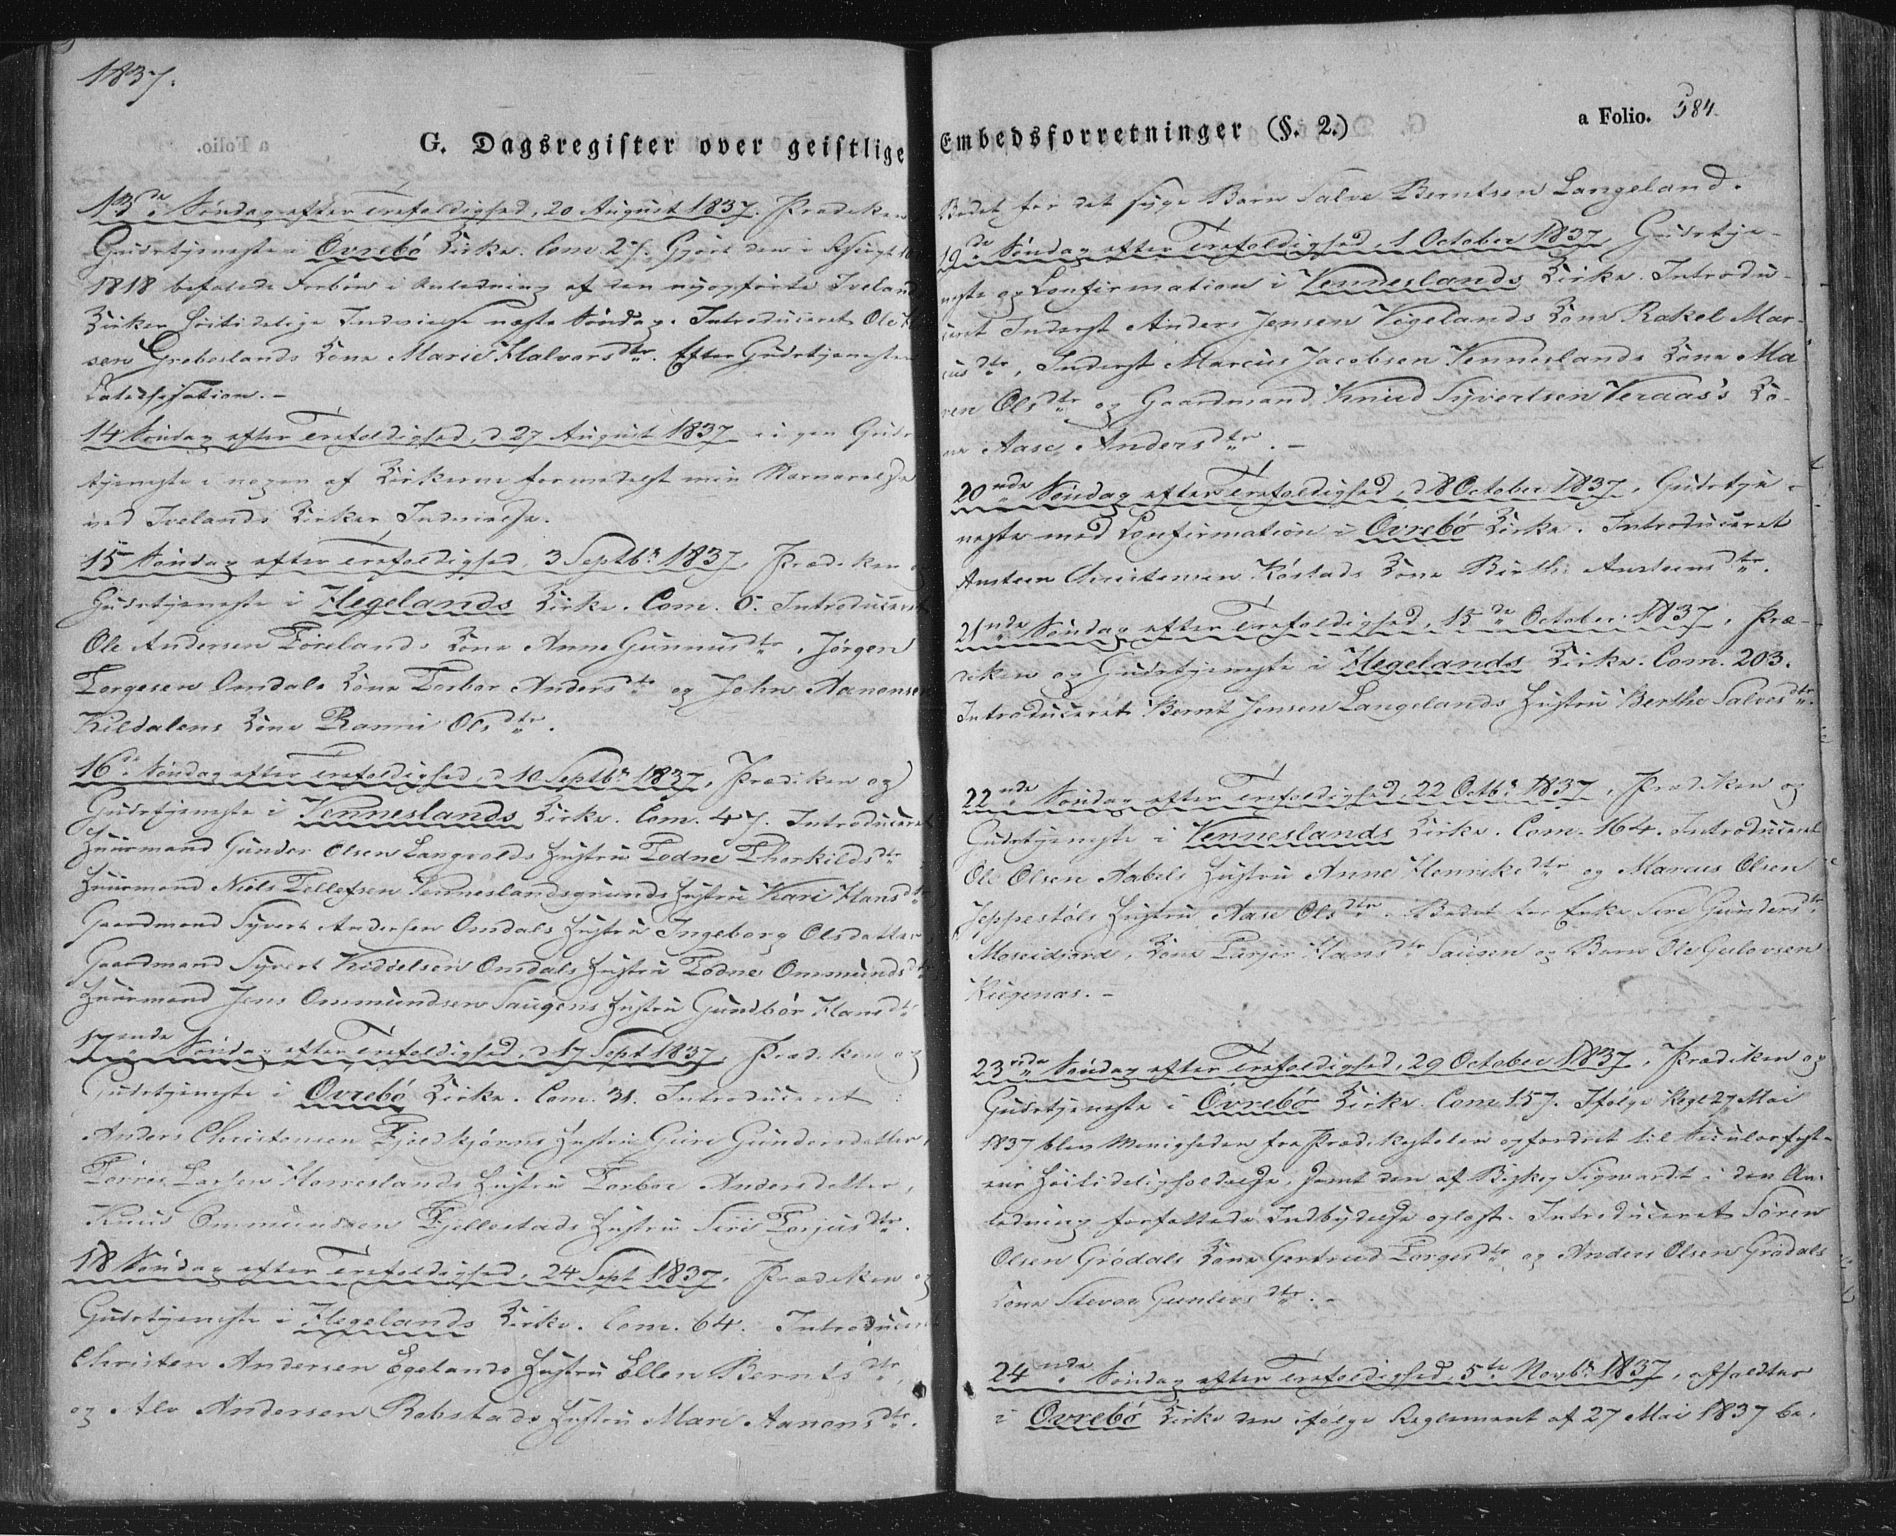 1837.
G. Dagsregister over geistlige
13de Søndag efter Trefoldighed, 20 August 1837. Prædiken
Gudstjeneste i Øvrebö Kirke. Com. 27. Gjort den i Rescript
1818 befalede Forbön i Anledning af den nyopførte Iveland
Kirkes höitidelige Indvielse næste Søndag. Introduceret Ole
sen Greboslands Kone Marie Halvorsdtr. Efter Gudstjenesten
Catechisation. -
14 Søndag efter Trefoldighed, d 27 August 1837 ingen Guds
tjeneste i nogen af Kirkerne formedelst min Nærværelse
ved Ivelands Kirkes Indvielse.
15 Søndag efter Trefoldighed, 3 Septbr 1837, Prædiken
Gudstjeneste i Hegelands Kirke. Com. 0. Introduceret
Ole Andersen Föreland Kone Anne Gunnusdtr, Jørgen
Torgesen Omdals Kone Torbor Andersdtr og John Aanonsen
Kildalens Kone Ranni Olsdtr.
16de Søndag efter Trefoldighed, d 10 Septbr 1837, Prædiken og
Gudstjeneste i Venneslands Kirke. Com. 47. Introduceret
Huusmand Gunder Olsen Langvolds Hustru Todne Thorkildsdtr
Huusmand Niels Tellefsen Venneslandsgrunds Hustru Kari Hansdtr
Gaardmand Syvert Andersen Omdals Hustru Ingeborg Olsdatter
Gaardmand Syvert Kiddelsen Omdals Hustru Todne Ommundsdtr
Huusmand Jens Ommundsen Saugens Hustru Gundbör Hansdtr
17ende Søndag efter Trefoldighed, d 17 Sept 1837, Prædiken og
Gudstjeneste i Øvrebö Kirke. Com. 31. Introduceret:
Anders Christensen Fjeldskjörns Hustru Guri Gundersdatter,
Törres Larsen Horreslands Hustru Torbor Andersdatter,
Knud Ommundsen Fjellestads Hustru Siri Torjusdtr.
18 Søndag efter Trefoldighed, 24 Sept 1837, Prædiken og
Gudstjeneste i Hegelands Kirke. Com. 64. Introduceret
Christen Andersen Egelands Hustru Ellen Berntsdtr,
og Alv Andersen Robstads Hustru Mari Aanonsdtr.
Embedsforretninger (§. 2.)
a Folio. 584.
Bedet for det syge Barn Salve Berntsen Langeland.
19de Søndag efter Trefoldighed, 1 October 1837, Gudstje-
neste og Confirmation i Venneslands Kirke. Introdu-
ceret Inderst Anders Jensen Vigelands Kone Rakel Mar-
cusdtr, Inderst Marcus Jacobsen Venneslands Kone Ma
ren Olsdtr og Gaardmand Knud Syvertsen Veraas's Ko-
ne Aase Andersdtr. -
20nde Søndag efter Trefoldighed, d 8 October 1837, Gudstje-
neste med Confirmation i Øvrebö Kirke. Introduceret
Austeen Christensen Röstads Kone Birthe Austeensdtr.
21nde Søndag efter Trefoldighed, 15de October 1837, Præ-
diken og Gudstjeneste i Hegelands Kirke. Com. 203.
Introduceret Bernt Jensen Langelands Hustru Berthe Salvesdtr.
22nde Søndag efter Trefoldighed, 22 Octbr 1837, Prædiken og
Gudstjeneste i Venneslands Kirke. Com. 164. Introduceret
Ole Olsen Aabels Hustru Anne Henriksdtr og Marcus Olsen
Jeppestöls Hustru Aase Olsdtr. Bedet for Enke Siri Gundersdtr
Moseidjord, Kone Turjer Hansdtr Saugen og Barn Ole Gulovsen
Kugenæs. -
23nde Søndag efter Trefoldighed, 29 October 1837, Prædiken og
Gudstjeneste i Øvrebö Kirke. Com. 157. Ifølge Regl 27 Mai
1837 blev Menigheden fra Prædikestolen opfordret til Secularfest-
ens Höitideligholdelse, samt den af Biskop Sigwardt i den An-
ledning forfattede Indbydelse oplæst. Introduceret Sören
Olsen Grödals Kone Gertrud Torgesdtr og Anders Olsen Grödals
Kone Stevor Gunlersdtr. -
24nde Søndag efter Trefoldighed, 5te Novbr 1837, afholdtes
i Øvrebö Kirke den ifølge Reglement af 27 Mai 1837 be-